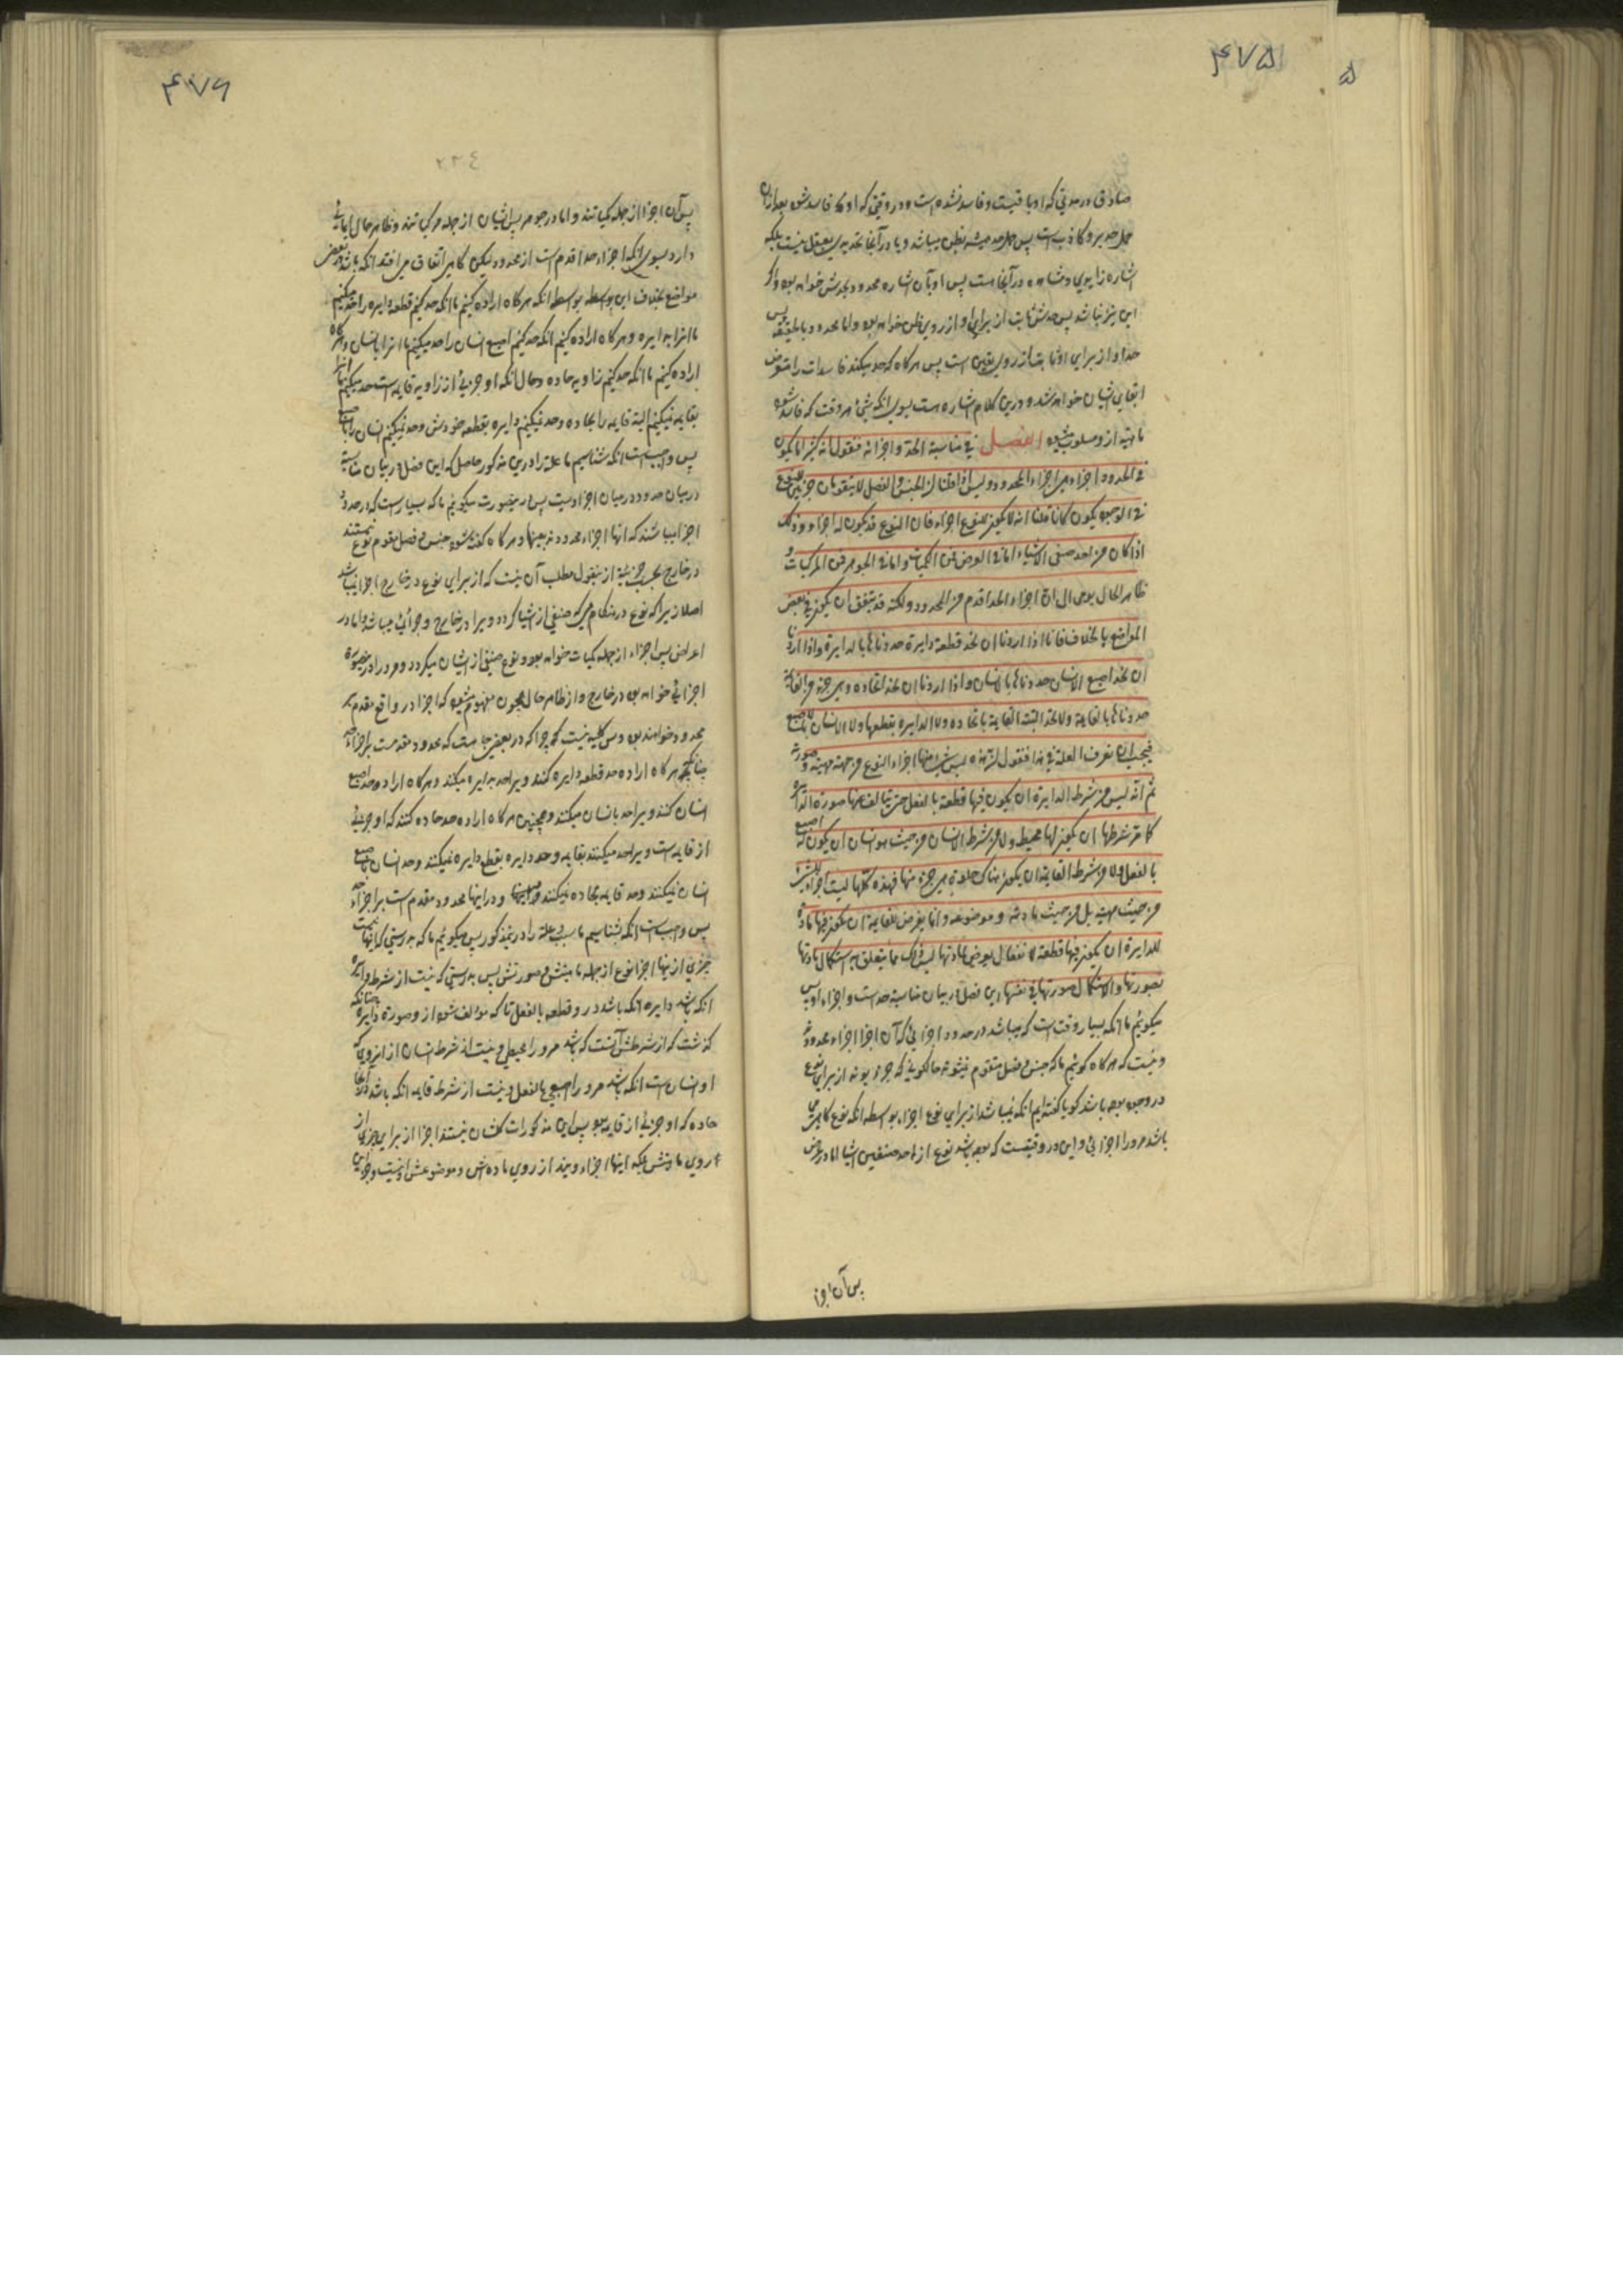 ۴۷۵
۵
صادق در مدتی که او باقیست و فاسد نشده است و در وقتی که او فاسد شد بعد ازان
حمل حد برو کاذب است پس حمل حد همیشه بظن میباشد و یا در آنجا تحدید بعقل نیست بلکه
اشاره زایدی و مشاهده در آنجا هست پس او بآن اشاره محدود بحدش خواهد بود و اگر
این نیز نباشد پس حدش ثابت از برای او از روی ظن خواهد بود و اما محدود بالحقیقه پس
حد او از برای او ثابت از روی یقین است پس هرگاه که حد میکند فاسدات را متعرض
ابقای ایشان خواهد شد و درین کلام اشاره است بسوی انکه شیء هر وقت که فاسد شود
ماهیة از و مسلوب شود الفصل فی مناسبة الحد و اجزائه فنقول انه کثیرا ما یکون
فی الحدود اجزاء هی اجزاء المحدود و لیس اذا قلنا ان الجنس و الفصل لا یتقومان جزئین للنوع
فی الوجود یکون کاننا قلنا انه لا یکون للنوع اجزاء فان النوع قد یکون له اجزاء و ذلک
اذا کان من احد صنفی الاشیاء اما فی العرض فمن الکمیات و اما فی الجوهر فمن المرکبات و
ظاهر الحال یومی الی ان اجزاء الحد اقدم من المحدود و لکنه قد یتفق ان یکون فی بعض
المواضع بالخلاف فانا اذا اردنا ان نحد قطعة دایرة حددناها بالدایرة و اذا اردنا
ان نحد اصبع الانسان حددناها بالانسان و اذا اردنا ان نحد الحادة و هی جزء من القایمة
حددناها بالقایمة و لا نحد البتة القایمة بالحادة و لا الدایرة بقطعها و لا الانسان بالاصبع
فیجب ان نعرف العلة فی هذا فنقول ان هذه لیس شیء منها اجزاء النوع من جهة مهیته و صورته
ثم انه لیس من شرط الدایرة ان یکون فیها قطعة بالفعل حتی یتالف عنها صورة الدایرة
کما من شرطها ان یکون لها محیط و لا من شرط الانسان من حیث هو انسان ان یکون له اصبع
بالفعل و لا من شرط القایمة ان یکون هناک حادة هی جزء منها فهذه کلها لیست اجزاء للشیء
من حیث مهیته بل من حیث مادته و موضوعه و انما یعرض للقایمة ان یکون فیها حادة
للدایرة ان یکون فیها قطعة لانفعال یعرض لمادتها لیس ذلک مما یتعلق به استکمال مادتها
بصورتها و لا استکمال صورتها فی نفسها این فصل در بیان مناسبة حد است و اجزاء او پس
میکوئیم ما انکه بسیار وقت است که میباشد در حدود اجزائی که آن اجزا اجزاء محدود
و نیست که هرگاه کوئیم ما که جنس و فصل متقوم نمیشوند
در وجود بوده باشد کویا گفته ایم انکه نمیباشد از برای نوع اجزاء بواسطه انکه نوع گاه هست
باشد مر او را اجزائی و این در وقتیست که بوده باشد نوع از احد صنفین اشیا اما در عرض
پس آن اجزا
۴۷۶
۲۳۴
پس آن اجزا از جمله کمیاتند و اما در جوهر پس ایشان از جمله مرکباتند و ظاهر حال ایمائی
دارد بسوی انکه اجزاء حد اقدم است از محدود لیکن گاهی اتفاق می افتد انکه باشد در بعض
مواضع بخلاف این بواسطه انکه هرگاه اراده کنیم ما انکه حد کنیم قطعه دایره را حد میکنیم
ما انرا بدایره و هرگاه اراده کنیم انکه حد کنیم اصبع انسان را حد میکنیم ما انرا بانسان و هرگاه
اراده کنیم ما انکه حد کنیم زاویه حاده و حال انکه او جزئی از زاویه قایمه است حد میکنیم ما انرا
بقایمه و نمیکنیم البته قایمه را بحاده و حد نمیکنیم دایره بقطعه خودش و حد نمیکنیم انسان را باصبع
پس واجب است انکه شناسیم ما علة را درین مذکور حاصل که این فصل در بیان مناسبة
در میان حدود و در میان اجزاء است پس درینصورت میکوئیم ما که بسیار است که در حدود
اجزا میباشند که انها اجزاء محدودند بعینها و هرگاه گفته شود جنس و فصل مقوم نوع نیستند
در خارج بحسب جزئیة ازینقول مطلب آن نیست که از برای نوع در خارج اجزا نباشد
اصلا زیرا که نوع در هنگامی که صنفی از اشیا گردد ویرا در خارج وجود اجزائی میباشد و اما در
اعراض پس اجزاء از جمله کمیات خواهد بود و نوع صنفی از ایشان میگردد و مر او را درینصورة
اجزائی خواهد بود در خارج و از ظاهر حال چون مفهوم میشود که اجزا در واقع مقدم بر
محدود خواهند بود و این کلیه نیست چرا که در بعضی جا هست که محدود مقدمست بر اجزاء حد
چنانکه هرگاه اراده حد قطعه دایره کنند ویرا حد بدایره میکند و هرگاه اراده حد اصبع
انسان کنند ویرا حد بانسان میکنند و همچنین هرگاه اراده حد حاده کنند که او جزئی
از قایمه است ویرا حد میکنند بقایمه و حد دایره بقطع دایره نمیکنند و حد انسان باصبع
انسان نمیکنند و حد قایمه بحاده نمیکنند و در اینها محدود مقدم است بر اجزاء حد
پس واجب است انکه بشناسیم ما سبب و علة را درینمذکور پس میکوئیم ما که بدرستی که اینها نیست
چیزی از اینها اجزا نوع از جهة ماهیتش و صورتش پس بدرستی که نیست از شرط دایره
انکه باشد دایره انکه باشد درو قطعه بالفعل تا که مؤلف شود از و صورة دایره چنانکه
گذشت که از شرطش آنست که باشد مر او را محیطی و نیست از شرط انسان از انروی که
او انسان است انکه باشد مر او را اصبعی بالفعل و نیست از شرط قایمه انکه باشد در آنجا
حاده که او جزئی از قایمه بود پس این مذکورات کلشان نیستند اجزا از برای چیزی از
روی ماهیتش بلکه اینها اجزاء ویند از روی ماده اش و موضوعش